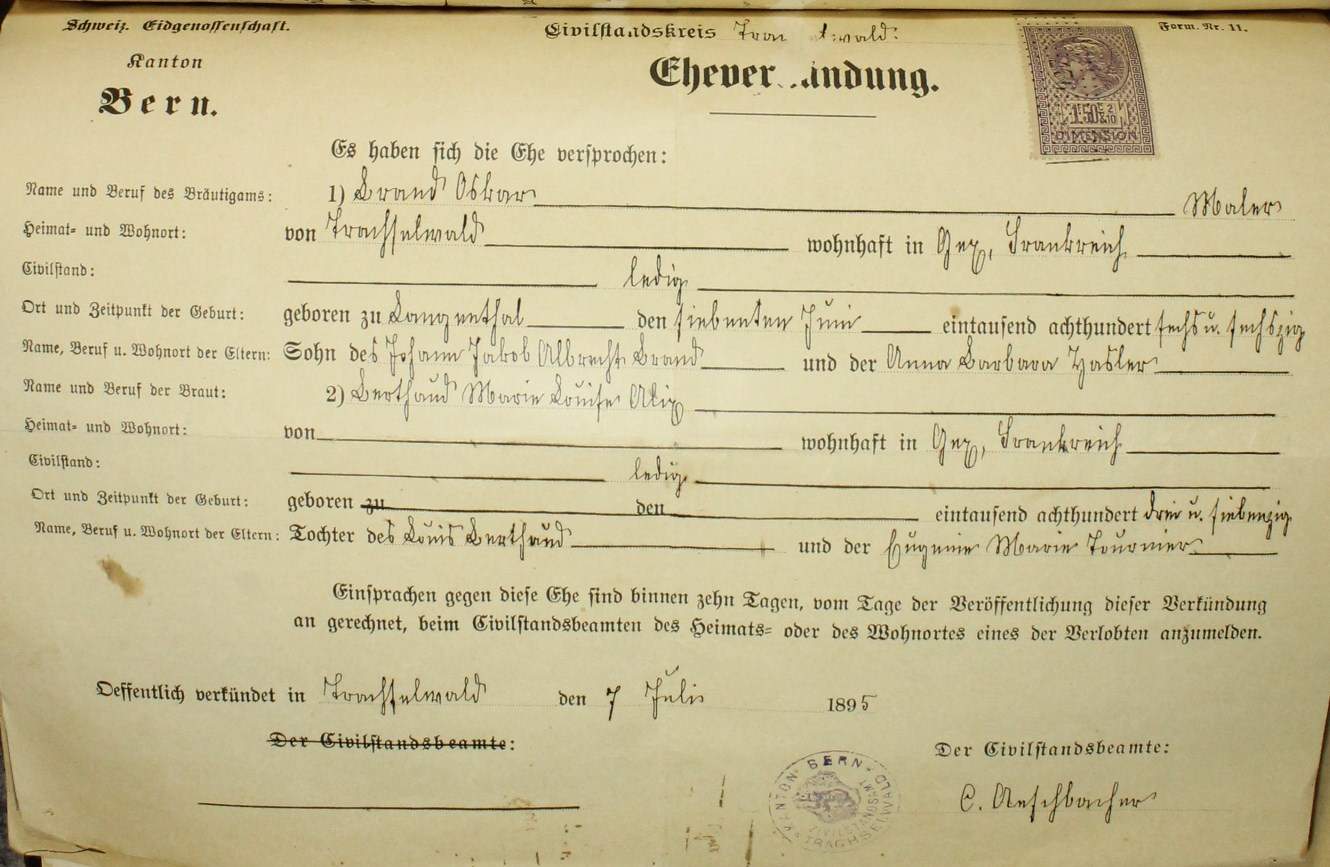 Schweiz. Eidgenossenschaft.
Civilstandskreis Trachselwald.
Form. Nr. 11.
Kanton
Bern.
Eheverkündung.
1 50 c 2/10
DIMENSION
Es haben sich die Ehe versprochen:
Name und Beruf des Bräutigams: 1) Brand Oskar Maler
Heimat= und Wohnort: von Trachselwald wohnhaft in Gex, Frankreich
Civilstand: ledig
Ort und Zeitpunkt der Geburt: geboren zu Langenthal den siebenten Juni eintausend achthundert sechs u. sechszig
Name, Beruf u. Wohnort der Eltern: Sohn des Johann Jakob Albrecht Brand und der Anna Barbara Hasler
Name und Beruf der Braut: 2) Berthaud Marie Louise Alix
Heimat= und Wohnort: von wohnhaft in Gex, Frankreich
Civilstand: ledig
Ort und Zeitpunkt der Geburt: geboren zu den eintausend achthundert drei u. siebenzig
Name, Beruf u. Wohnort der Eltern: Tochter des Louis Berthaud und der Eugenie Marie Tournier
Einsprachen gegen diese Ehe sind binnen zehn Tagen, vom Tage der Veröffentlichung dieser Verkündung
an gerechnet, beim Civilstandsbeamten des Heimats= oder des Wohnortes eines der Verlobten anzumelden.
Oeffentlich verkündet in Trachselwald den 7 Juli 1895
Der Civilstandsbeamte:
Der Civilstandsbeamte:
KANTON BERN
CIVILSTANDSAMT
TRACHSELWALD
C. Aeschbacher